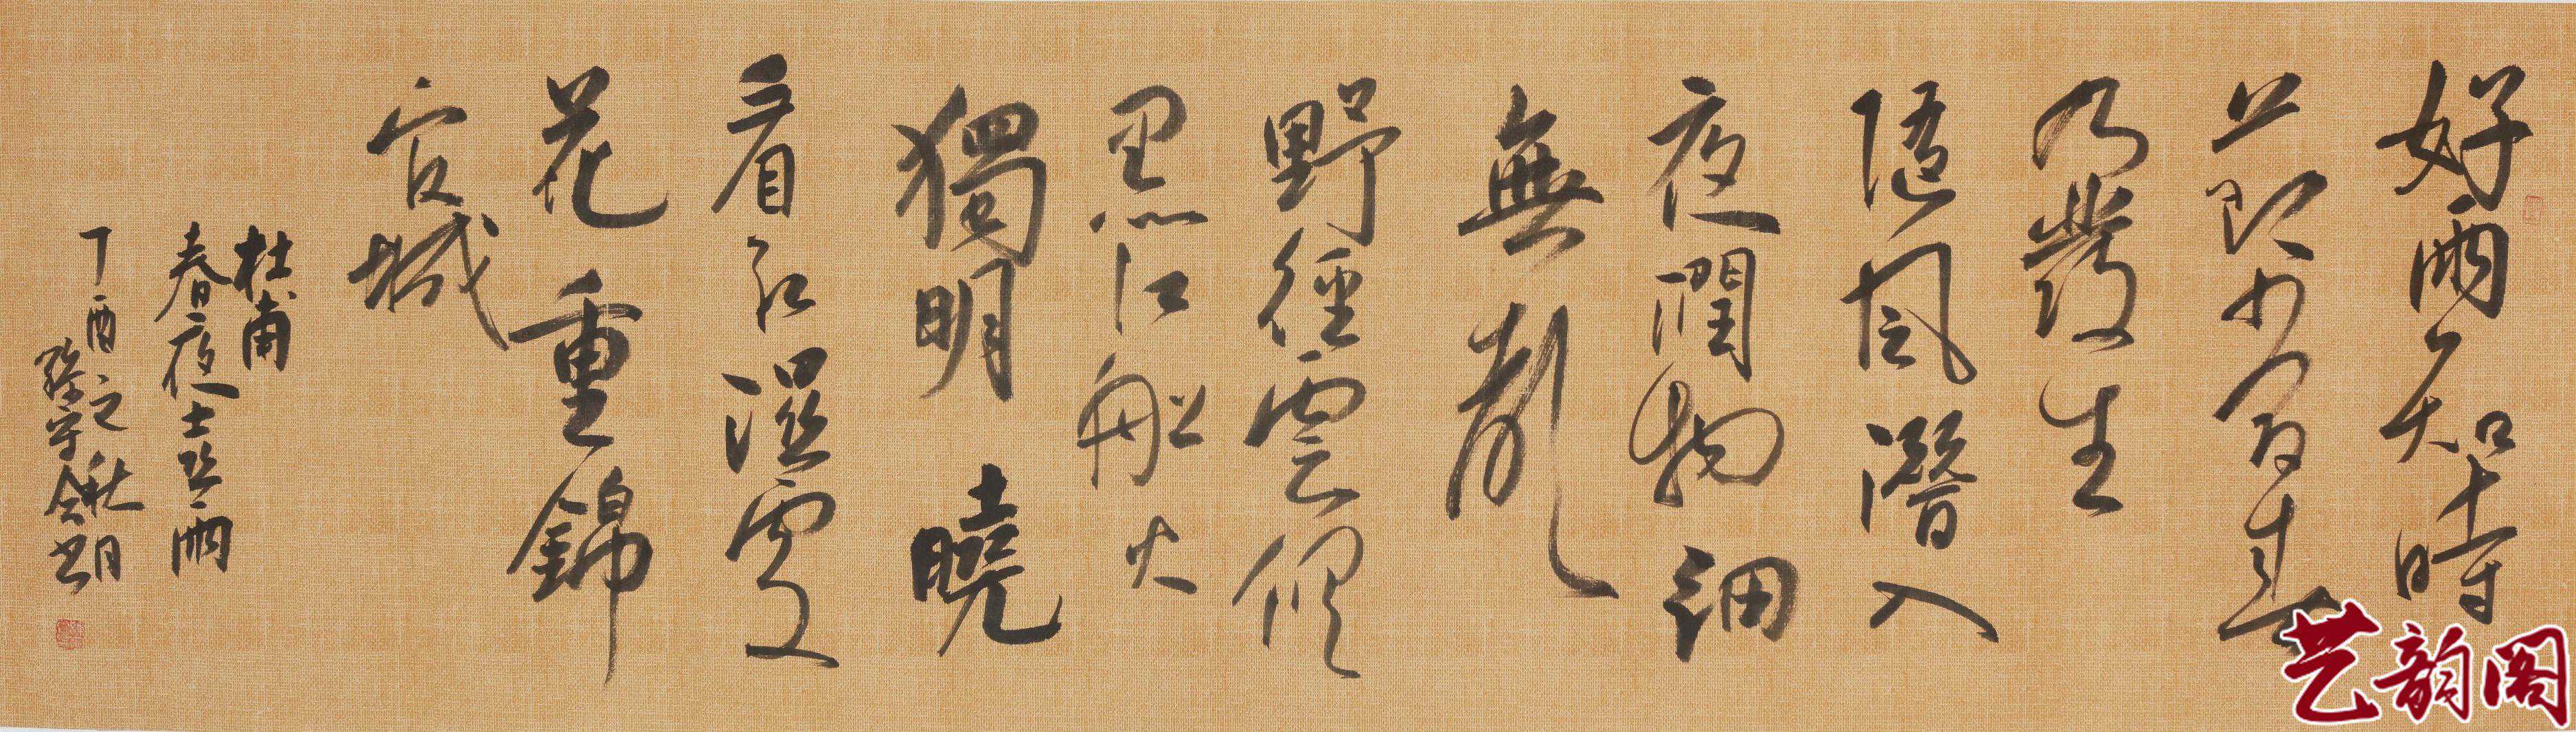 好雨知時
節當春
乃發生
隨風潛入
夜潤物細
無聲
野徑雲俱
黑江船火
獨明曉
看紅濕處
花重錦
官城
杜甫
春夜喜雨
丁酉之秋月
艺韵阁